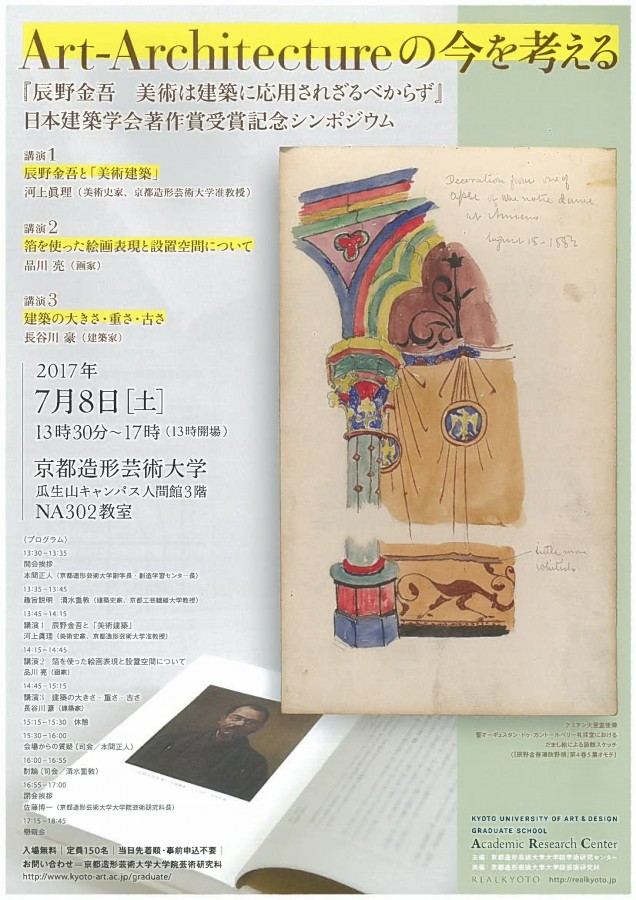 Art-Architectureの今を考える
『辰野金吾　美術は建築に応用されざるべからず』
日本建築学会著作賞受賞記念シンポジウム
講演1
辰野金吾と「美術建築」
河上眞理（美術史家、京都造形芸術大学准教授）
講演2
箔を使った絵画表現と設置空間について
品川 亮（画家）
講演3
建築の大きさ・重さ・古さ
長谷川 豪（建築家）
2017年
7月8日［土］
13時30分〜17時（13時開場）
京都造形芸術大学
瓜生山キャンパス人間館3階
NA302教室
〈プログラム〉
13:30−13:35
開会挨拶
本間正人（京都造形芸術大学副学長・創造学習センター長）
13:35−13:45
趣旨説明　清水重敦（建築史家、京都工芸繊維大学教授）
13:45−14:15
講演1　辰野金吾と「美術建築」
河上眞理（美術史家、京都造形芸術大学准教授）
14:15−14:45
講演2　箔を使った絵画表現と設置空間について
品川 亮（画家）
14:45−15:15
講演3　建築の大きさ・重さ・古さ
長谷川 豪（建築家）
15:15−15:30　休憩
15:30−16:00
会場からの質疑（司会／本間正人）
16:00−16:55
討論（司会／清水重敦）
16:55−17:00
閉会挨拶
佐藤博一（京都造形芸術大学大学院芸術研究科長）
17:15−18:45
懇親会
入場無料｜定員150名｜当日先着順・事前申込不要｜
お問い合わせ＝京都造形芸術大学大学院芸術研究科
http://www.kyoto-art.ac.jp/graduate/
Decoration from one of
apse of the notre dame
at Amiens
August 15-1882
little more
whitish
アミアン大聖堂後陣
聖オーギュスタン・ドゥ・カントールベリー礼拝堂における
だまし絵による装飾スケッチ
（『辰野金吾滞欧野帳』第4巻5葉オモテ）
KYOTO UNIVERSITY OF ART & DESIGN
GRADUATE SCHOOL
Academic Research Center
主催：京都造形芸術大学大学院学術研究センター
共催：京都造形芸術大学大学院芸術研究科
REALKYOTO http://realkyoto.jp